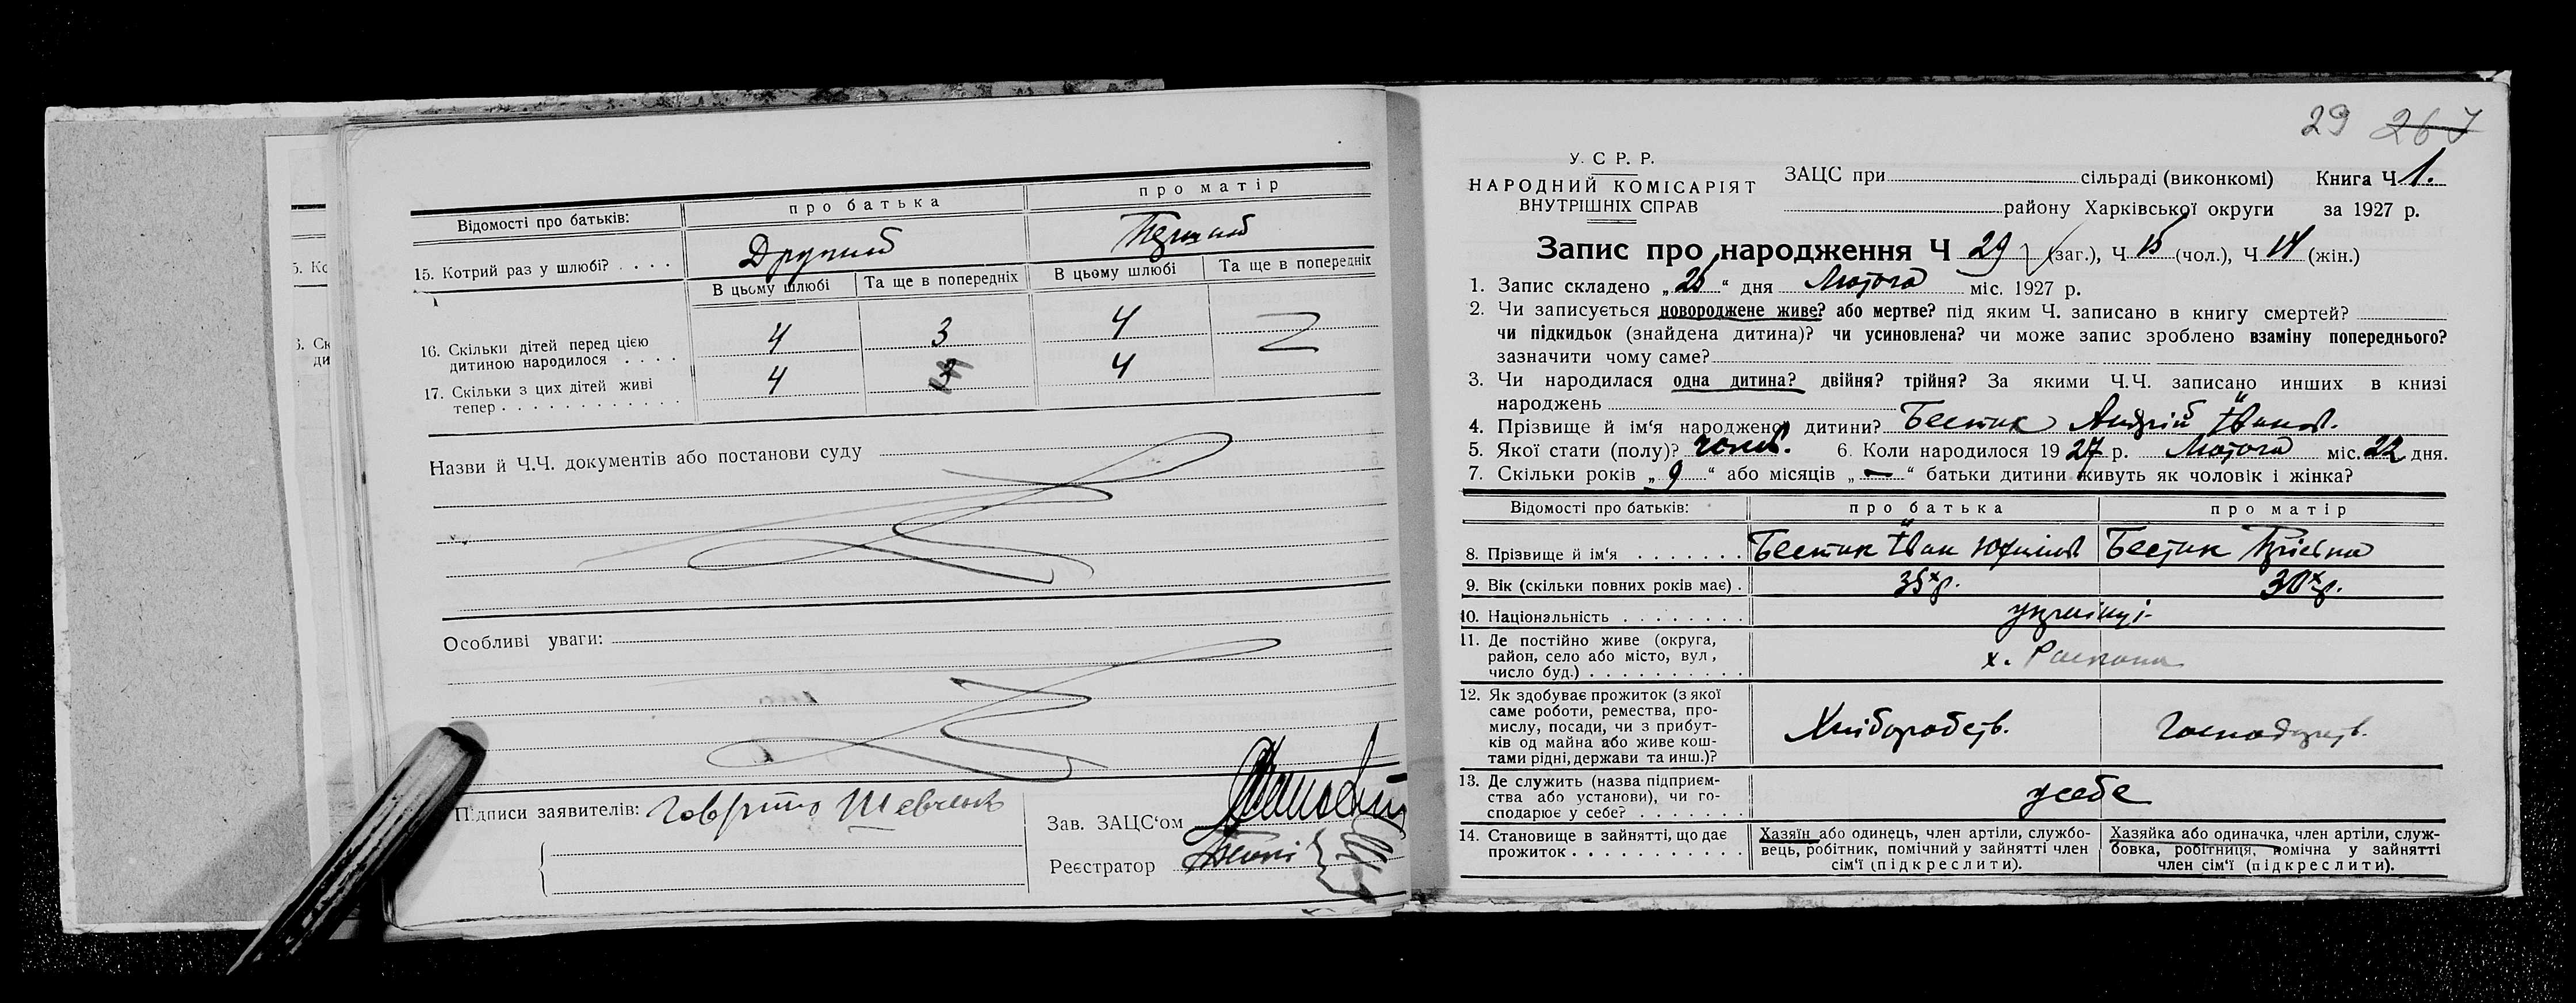 про батька
про матір
Відомості про батьків:
15. Котрий раз у шлюбі? . . . .
Другий
Перший
В цьому шлюбі
Та ще в попередніх
В цьому шлюбі
Та ще в попередніх
16. Скільки дітей перед цією
дитиною народилося . . . .
4
3
4
17. Скільки з цих дітей живі
тепер . . . . . . . . . . . .
4
4
Назви й Ч.Ч. документів або постанови суду
Особливі уваги:
Підписи заявителів:
Зав. ЗАЦС'ом
Реєстратор
5. Ко
6. Ск
ди
29 267
У. С. Р. Р.
НАРОДНИЙ КОМІСАРІЯТ
ВНУТРІШНІХ СПРАВ
ЗАЦС при сільраді (виконкомі) Книга Ч 1.
району Харківської округи за 1927 р.
Запис про народження Ч 29 (заг.), Ч 15 (чол.), Ч 14 (жін.)
1. Запис складено „25“ дня Лютого міс. 1927 р.
2. Чи записується новороджене живе? або мертве? під яким Ч. записано в книгу смертей?
чи підкидьок (знайдена дитина)? чи усиновлена? чи може запис зроблено взаміну попереднього?
зазначити чому саме?
3. Чи народилася одна дитина? двійня? трійня? За якими Ч.Ч. записано инших в книзі
народжень
4. Прізвище й ім'я народженої дитини? Бестик Андрій Іванов.
5. Якої стати (полу)? чолов. 6. Коли народилося 1927 р. Лютого міс. 22 дня.
7. Скільки років „9“ або місяців „—“ батьки дитини живуть як чоловік і жінка?
Відомості про батьків:
про батька
про матір
8. Прізвище й ім'я . . . . . . .
Бестик Іван Юхимов.
Бестик
9. Вік (скільки повних років має) .
35 х р.
30 х р.
10. Національність . . . . . . . .
українці
11. Де постійно живе (округа,
район, село або місто, вул,
число буд.) . . . . . . . . . . .
х.
12. Як здобуває прожиток (з якої
саме роботи, ремества, про-
мислу, посади, чи з прибут-
ків од майна або живе кош-
тами рідні, держави та инш.)?
Хліборобств.
Господарств.
13. Де служить (назва підприєм-
ства або установи), чи го-
сподарює у себе? . . . . . . .
у себе
14. Становище в зайнятті, що дає
прожиток . . . . . . . . . . .
Хазяїн або одинець, член артіли, службо-
вець, робітник, помічний у зайнятті член
сім'ї (підкреслити).
Хазяйка або одиначка, член артіли, служ-
бовка, робітниця, помічна у зайнятті
член сім'ї (підкреслити).